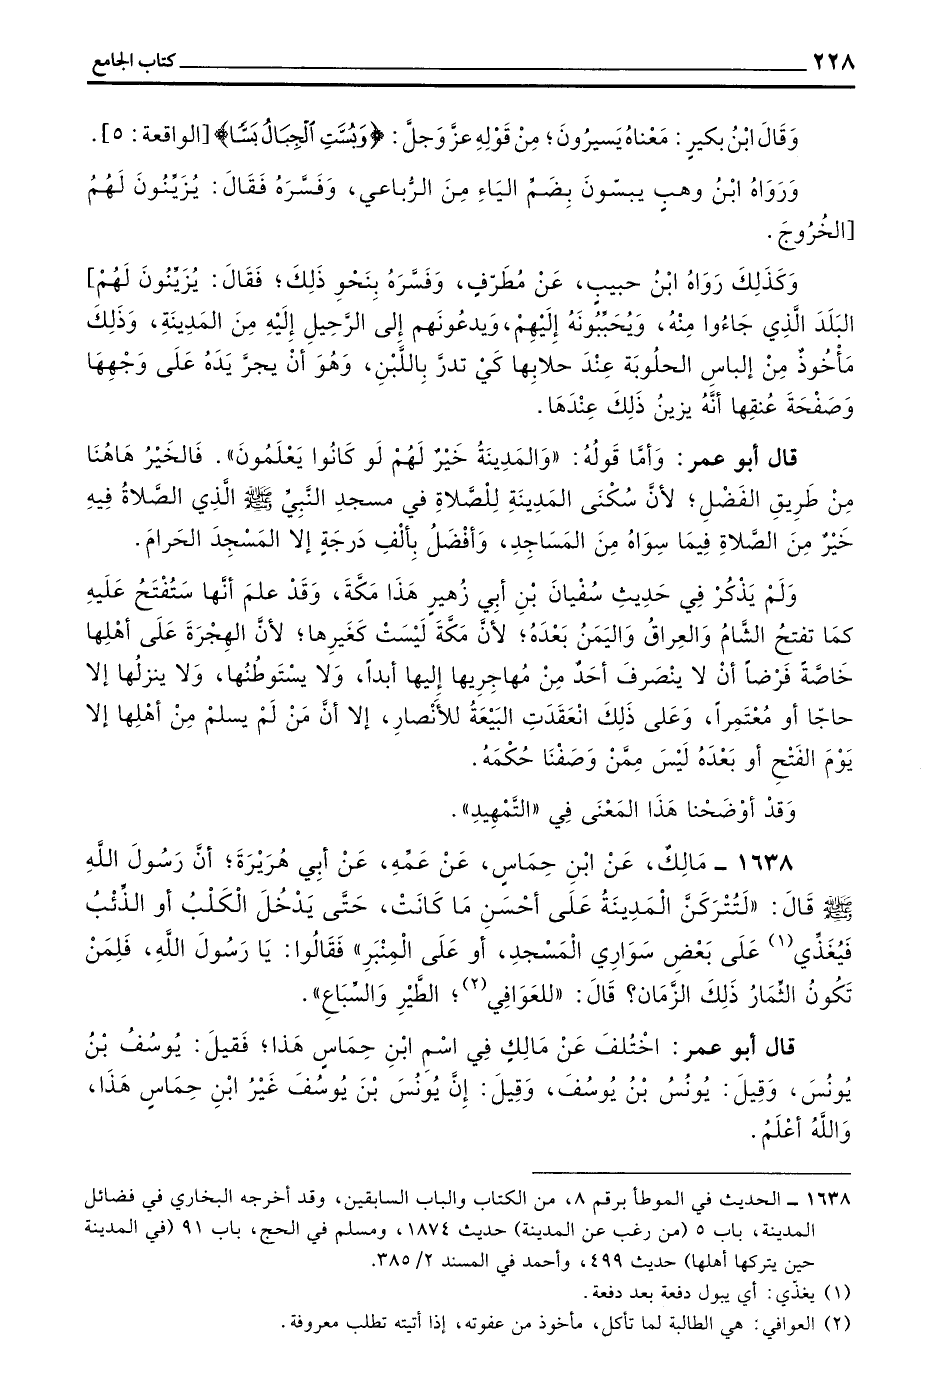 ٢٢٨ كتاب الجامع
وَقَالَ ابْنُ بكيرٍ: مَعْناهُ يَسيرُونَ؛ مِنْ قَوْلِهِ عزَّ وَجلَّ: ﴿وَبُسَّتِ ٱلْجِبَالُ بَسًّا﴾ [الواقعة: ٥].
وَرَوَاهُ ابْنُ وهبٍ يبسّونَ بِضَمِّ اليَاءِ مِنَ الرُّباعي، وَفَسَّرَهُ فَقَالَ: يُزَيِّنُونَ لَهُمُ
[الخُرُوجَ.
وَكَذَلِكَ رَوَاهُ ابْنُ حبيبٍ، عَنْ مُطَرّفٍ، وَفَسَّرَهُ بِنَحْوِ ذَلِكَ؛ فَقَالَ: يُزَيِّنُونَ لَهُمْ]
البَلَدَ الَّذِي جَاءُوا مِنْهُ، وَيُحَبِّبُونَهُ إِلَيْهِمْ، وَيدعُونَهم إلى الرَّحِيلِ إِلَيْهِ مِنَ المَدِينَةِ، وَذَلِكَ
مَأْخُوذٌ مِنْ إلباسِ الحلوبَة عِنْدَ حلابِها كَيْ تدرَّ بِاللَّبْنِ، وَهُوَ أنْ يجرَّ يَدَهُ عَلَى وَجْهِهَا
وَصَفْحَةَ عُنقِها أنَّهُ يزينُ ذَلِكَ عِنْدَهَا.
قال أبو عمر: وَأمَّا قَولُهُ: «وَالمَدِينَةُ خَيْرٌ لَهُمْ لَو كَانُوا يَعْلَمُونَ». فَالخَيْرُ هَاهُنَا
مِنْ طَرِيقِ الفَضْلِ؛ لأنَّ سُكْنَى المَدِينَةِ لِلصَّلاةِ في مسجدِ النَّبِيِّ ﷺ الَّذِي الصَّلاةُ فِيهِ
خَيْرٌ مِنَ الصَّلاةِ فِيمَا سِوَاهُ مِنَ المَسَاجِدِ، وَأفْضَلُ بِألْفِ دَرجَةٍ إلا المَسْجدَ الحَرامَ.
وَلَمْ يَذْكُرْ فِي حَدِيثِ سُفْيانَ بْنِ أبي زُهيرٍ هَذَا مَكَّةَ، وَقَدْ علمَ أنَّها سَتُفْتَحُ عَلَيهِ
كمَا تفتحُ الشَّامُ وَالعِراقُ وَاليَمَنُ بَعْدَهُ؛ لأنَّ مَكَّةَ لَيْسَتْ كَغَيرِها؛ لأنَّ الهِجْرَةَ عَلَى أهْلِها
خَاصَّةً فَرْضاً أنْ لا يَنْصَرفَ أحَدٌ مِنْ مُهاجِريها إليها أبداً، وَلا يسْتَوطُنُها، وَلا ينزلُها إلا
حاجّا أو مُعْتَمِراً، وَعَلَى ذَلِكَ انْعَقَدَتِ البَيْعَةُ للأَنْصارِ، إلا أنَّ مَنْ لَمْ يسلمْ مِنْ أهْلِها إلا
يَوْمَ الفَتْحِ أو بَعْدَهُ لَيْسَ مِمَّنْ وَصَفْنَا حُكْمَهُ.
وَقَدْ أوْضَحْنا هَذَا المَعْنَى فِي «التَّمْهِيدِ».
١٦٣٨ ـ مَالِكٌ، عَنْ ابْنِ حِمَاسٍ، عَنْ عَمِّهِ، عَنْ أبي هُرَيْرَةَ؛ أنَّ رَسُولَ اللَّهِ
ﷺ قَالَ: «لَتُتْرَكَنَّ الْمَدِينَةُ عَلَى أحْسَنِ مَا كَانَتْ، حَتَّى يَدْخُلَ الْكَلْبُ أو الذِّئْبُ
فَيُغَذِّي(١) عَلَى بَعْضِ سَوَارِي الْمَسْجِدِ، أو عَلَى الْمِنْبَرِ» فَقَالُوا: يَا رَسُولَ اللَّهِ، فَلِمَنْ
تَكُونُ الثِّمَارُ ذَلِكَ الزَّمَانِ؟ قَالَ: «للعَوَافِي(٢)؛ الطَّيْرِ وَالسِّبَاعِ».
قال أبو عمر: اخْتُلفَ عَنْ مَالِكٍ فِي اسْمِ ابْنِ حِمَاسٍ هَذا؛ فَقيلَ: يُوسُفُ بْنُ
يُونُسَ، وَقِيلَ: يُونُسُ بْنُ يُوسُفَ، وَقِيلَ: إنَّ يُونُسَ بْنَ يُوسُفَ غَيْرُ ابْنِ حِمَاسٍ هَذَا،
وَاللَّهُ أعْلَمُ.
١٦٣٨ ـ الحديث في الموطأ برقم ٨، من الكتاب والباب السابقين، وقد أخرجه البخاري في فضائل
المدينة، باب ٥ (من رغب عن المدينة) حديث ١٨٧٤، ومسلم في الحج، باب ٩١ (في المدينة
حين يتركها أهلها) حديث ٤٩٩، وأحمد في المسند ٢/ ٣٨٥.
(١) يغذّي: أي يبول دفعة بعد دفعة.
(٢) العوافي: هي الطالبة لما تأكل، مأخوذ من عفوته، إذا أتيته تطلب معروفة.